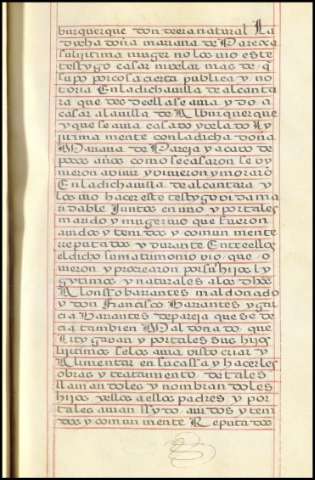 burquerque don deera natural La
dicha doña mariana de Pareja
su lijitima muger no los uio este
testygo casar mas de q
supo por cosa cierta publica y no
toria En la dicha uilla de alcanta
ra que desde ella se auia ydo a
casar a la uilla de Alburquerque
y que se auia casado y velado ly
jitima mente con la dicha doña
Mariana de Pareja y a cavo de
pocos años como se casaron se vy
nieron a viuir y viuieron y moraro
En la dicha uilla de alcantara y
los uio hacer este testygo vida ma
ridable Juntos en uno y por tales
marido y muger uio que fueron
auidos y tenidos y comun mente
reputados y durante Entre ellos
el dicho su matrimonio uio que o
uieron y procrearon por sus hijos ly
gytimos y naturales a los dhos
Alonsso barrantes maldonado
y don Francisco Barantes y gar
cia Barantes de pareja que se de
cia tambien Maldonado que
Litygaban y por tales sus hijos
lijitimos se los auia visto criar y
Alimentar en su cassa y hacerles
obras y tratamento de tales
llamandoles y nombrandoles
hijos y ellos a ellos padres y por
tales auian ssydo auidos y teni
dos y comun mente Reputados